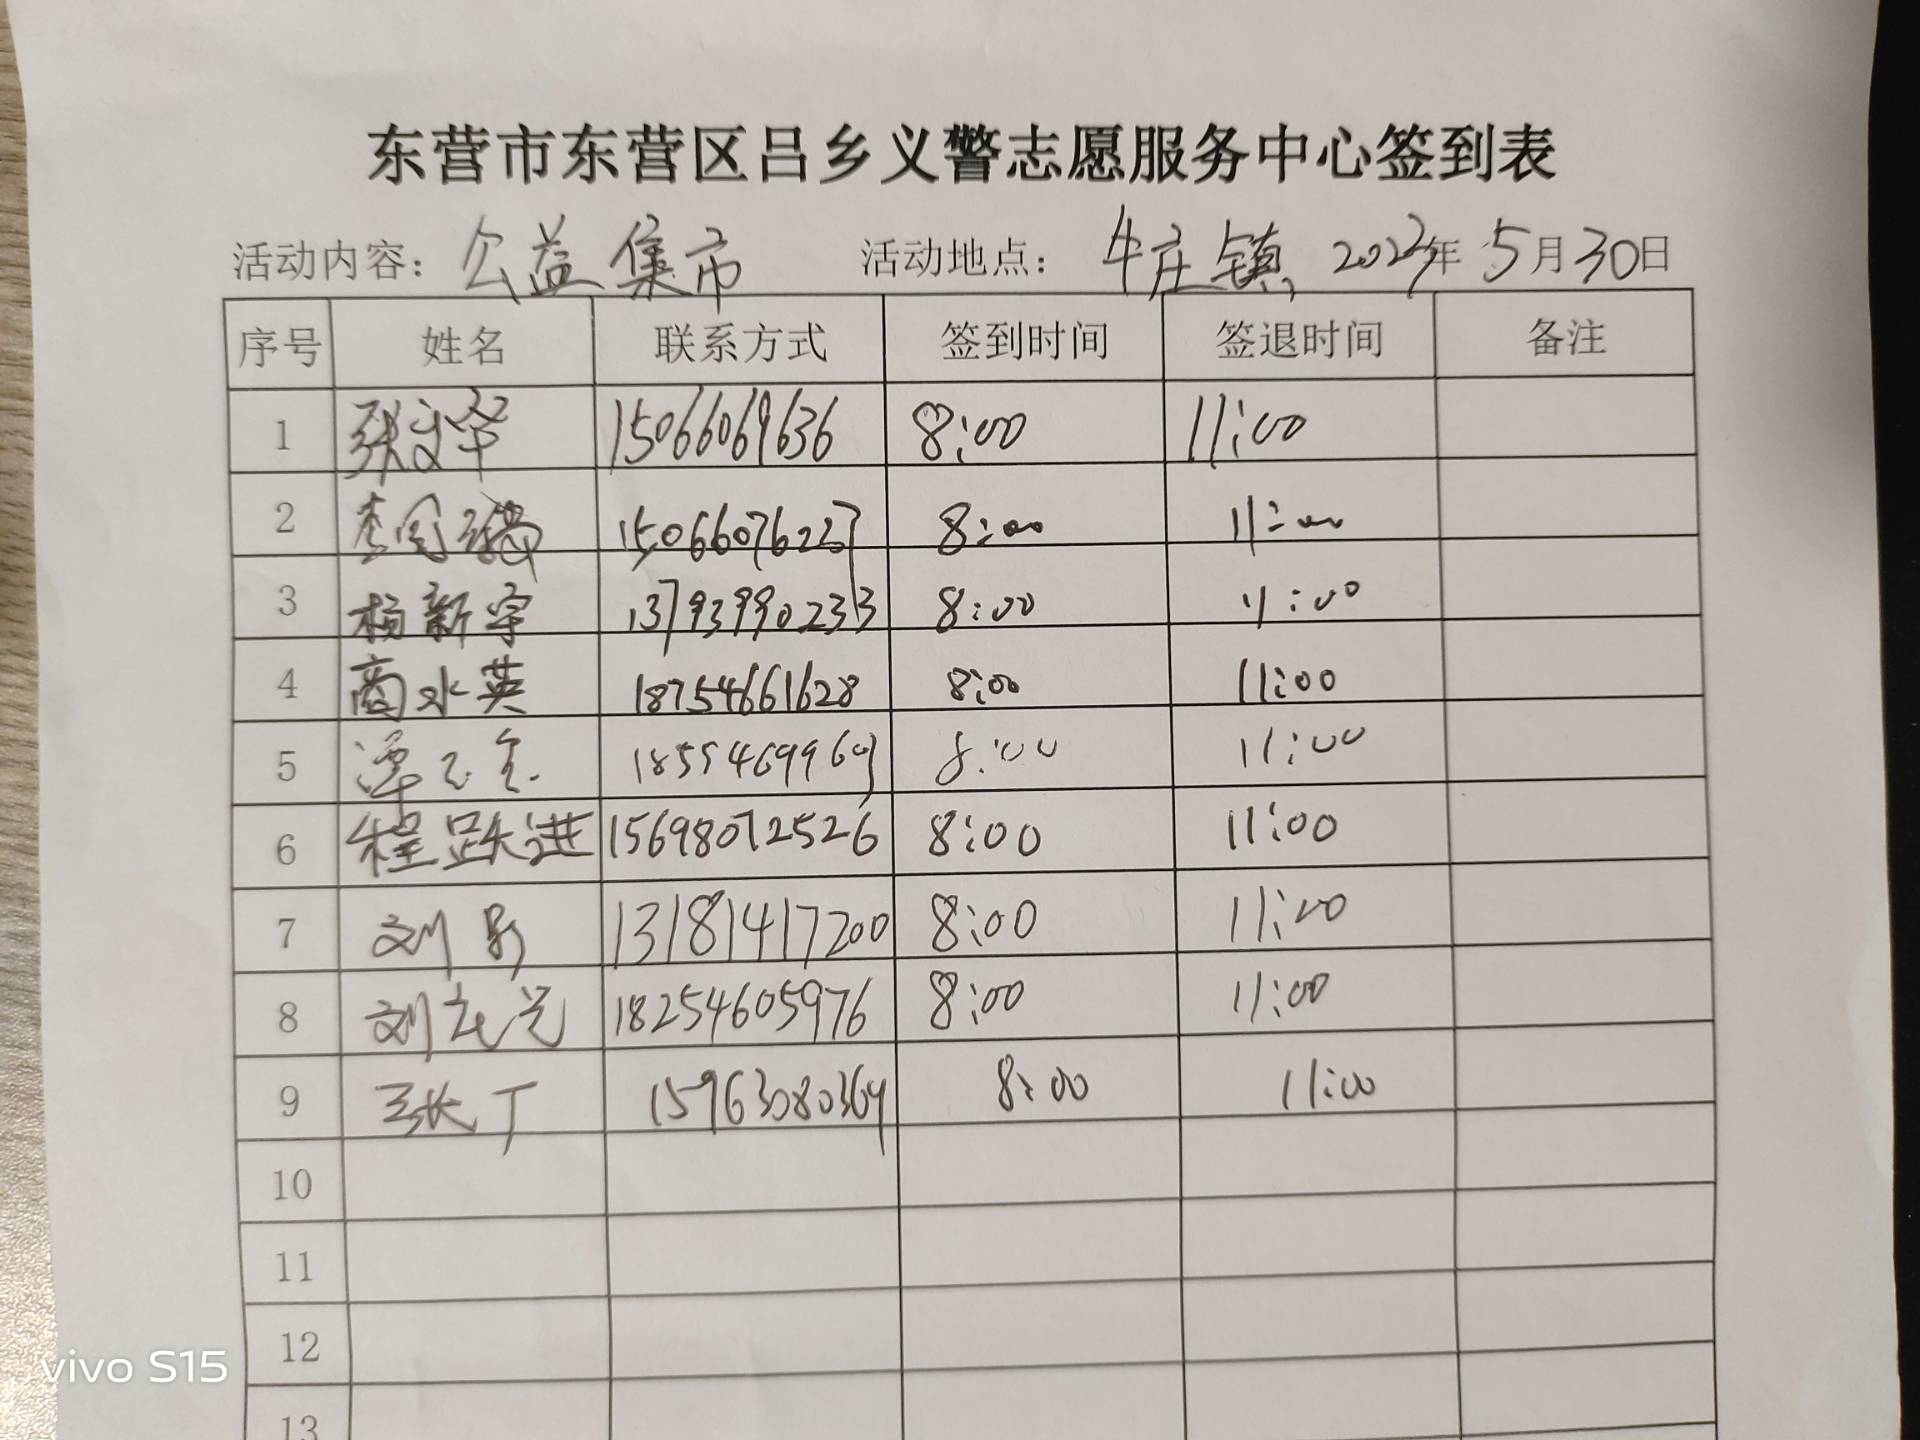 东营市东营区吕乡义警志愿服务中心签到表
活动内容：公益集市 活动地点：牛庄镇, 2023年 5月30日
序号 姓名 联系方式 签到时间 签退时间 备注
1 张文华 15066069636 8:00 11:00
2 李国瑞 15066076227 8:00 11:00
3 杨新宇 13793990233 8:00 11:00
4 商水英 18754661628 8:00 11:00
5 18554699609 8:00 11:00
6 程跃进 15698072526 8:00 11:00
7 刘影 13181417200 8:00 11:00
8 刘 18254605976 8:00 11:00
9 8:00 11:00
10
11
12
13
vivo S15